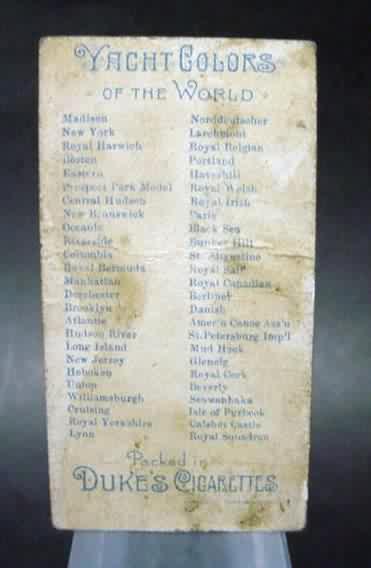 YACHT COLORS
OF THE WORLD
Madison
New York
Royal Harwich
Boston
Eastern
Prospect Park Model
Central Hudson
New Brunswick
Oceanic
Riverside
Columbia
Royal Bermuda
Manhattan
Dorchester
Brooklyn
Atlantic
Hudson River
Long Island
New Jersey
Hoboken
Union
Williamsburgh
Cruising
Royal Yorkshire
Lynn
Norddeutscher
Larchmont
Royal Belgian
Portland
Haverhill
Royal Welsh
Royal Irish
Paris
Black Sea
Bunker Hill
St. Augustine
Royal
Royal Canadian
Berliner
Danish
Amer'n Canoe Ass'n
St. Petersburg Imp'l
Mud Hook
Glenelg
Royal Cork
Beverly
Seawanhaka
Isle of Purbeck
Calshot Castle
Royal Squadron
Packed in
DUKE'S CIGARETTES